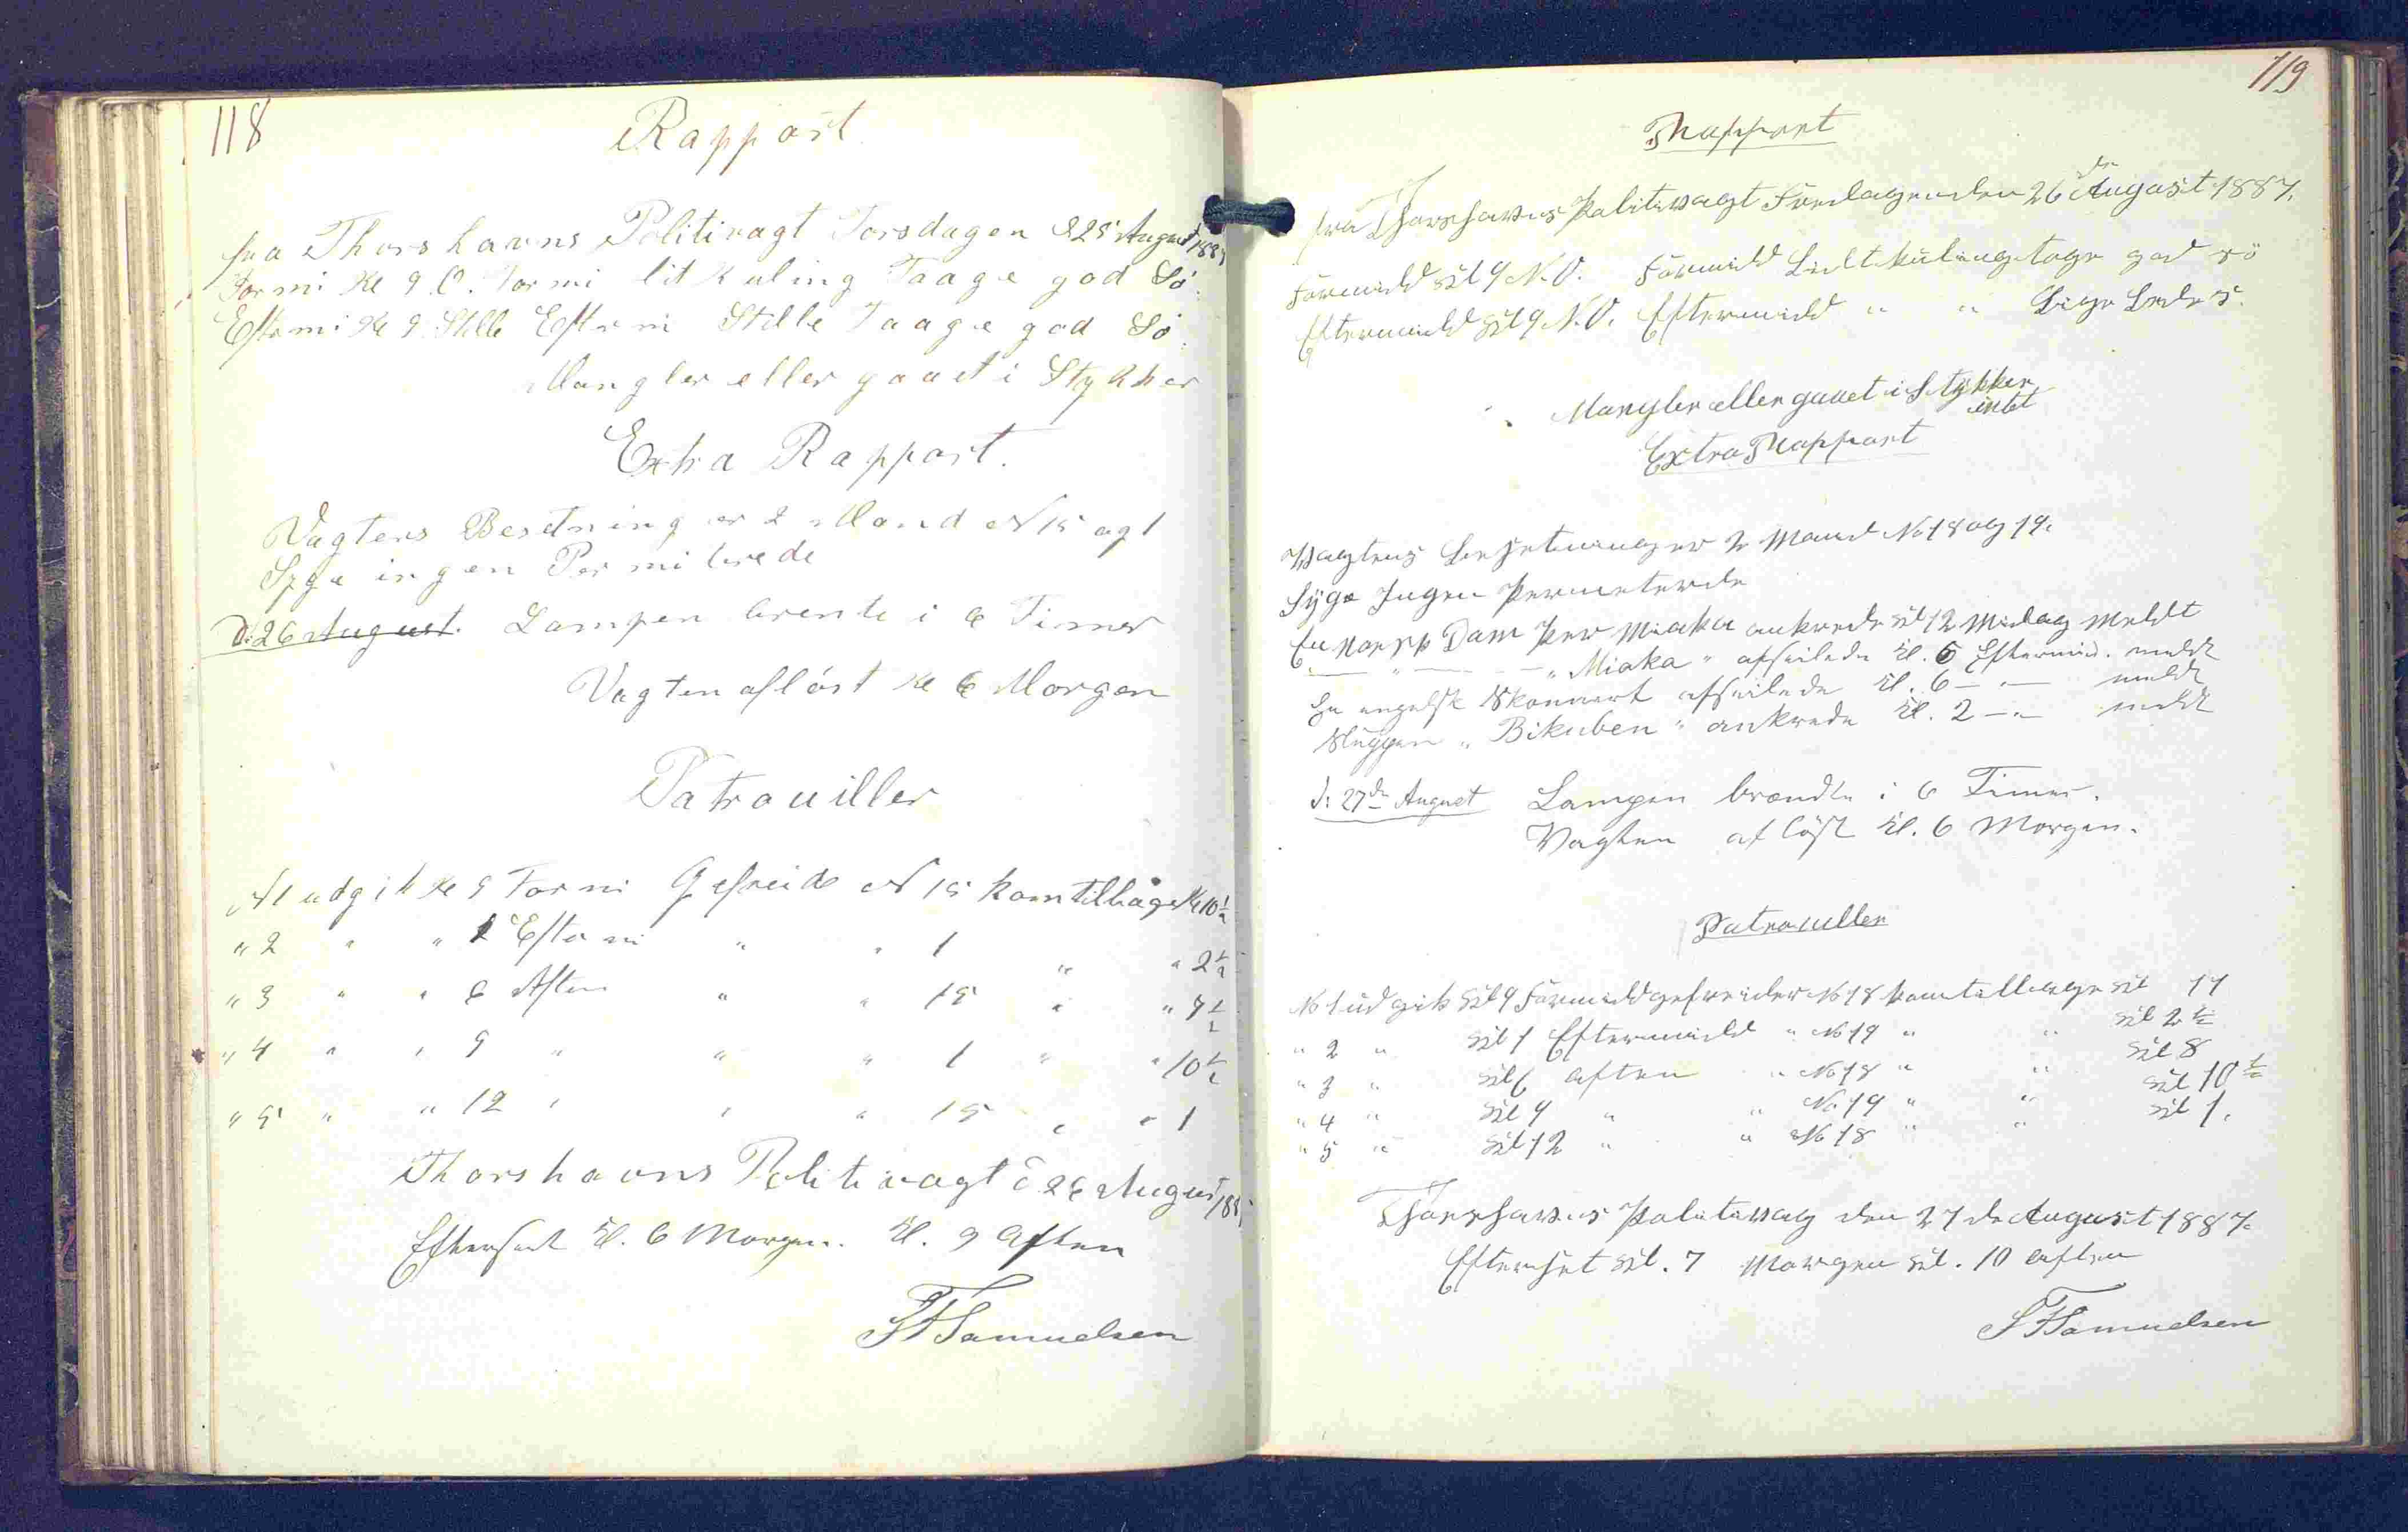 118
Rappost
fra Thorshavns Politivagt Torsdagen d 25 August 1887
Formi Kl 9 O. Formi lit Kuling Taage god Sö.
Eftemi Kl 9. Stille Eftemi Stille Taage god Sö.
Mangler eller gaaet i Stykker
Extra Rappost.
Vagtens Besetning er 2 Mand N 15 og 1
Syge ingen Permiterede
D: 26 August. Lampen brente i 6 Timer
Vagten aflöst Kl 6 Morgen
Patrouiller
N1 udgik Kl 9 Formi Gefreide N 15 kom tilbage Kl 10 1/2
" 2 " " 1 Eftemi " " 1 " " 2 1/2
" 3 " " 6 Aften " " 15 " " 7 1/2
" 4 " " 9 " " " 1 " " 10 1/2
" 5 " " 12 " " " 15 " " 1
Thorshavns Politivagt d 26 August 1887
Efterset Kl. 6 Morgen. Kl. 9 Aften
Samuelsen
119
Rapport
fra Thorshavns Politivagt Fredagen den 26 de August 1887.
Formidd Kl 9 N.O. Formidd Lidt kuling tage god sö
Eftermidd Kl 9 N.O. Eftermidd " " Lige Ledes.
Mangler eller gaaet i Stykker
intet
Extra Rapport
Vagtens besetning er 2 Mand No 18 og 19.
Syge Ingen Permeterede
En Norsk Dam Per Miaka ankrede Kl 12 Midag Meldt
— " — — " Miaka " afseilede Kl. 6 Eftermid. meldt
En engelsk Skonnert afseilede Kl. 6 — " — meldt
Sluppen " Bikuben " ankrede Kl. 2 — " meldt
d: 27de August Lampen brændte i 6 Timer.
Vagten aflöst Kl. 6 Morgen.
Patrouller
No 1 udgik Kl 9 Formidd gefreider No 18 kom tilbage Kl 11
" 2 " Kl 1 Eftermidd " No 19 " " Kl 2 1/2
" 3 " Kl 6 aften " No 18 " " Kl 8
" 4 " Kl 9 " " No 19 " " Kl 10 1/2
" 5 " Kl 12 " " No 18 " " Kl 1.
Thorshavns Politivag den 27 de August 1887.
Efterset Kl. 7 Morgen Kl. 10 aften
Samuelsen